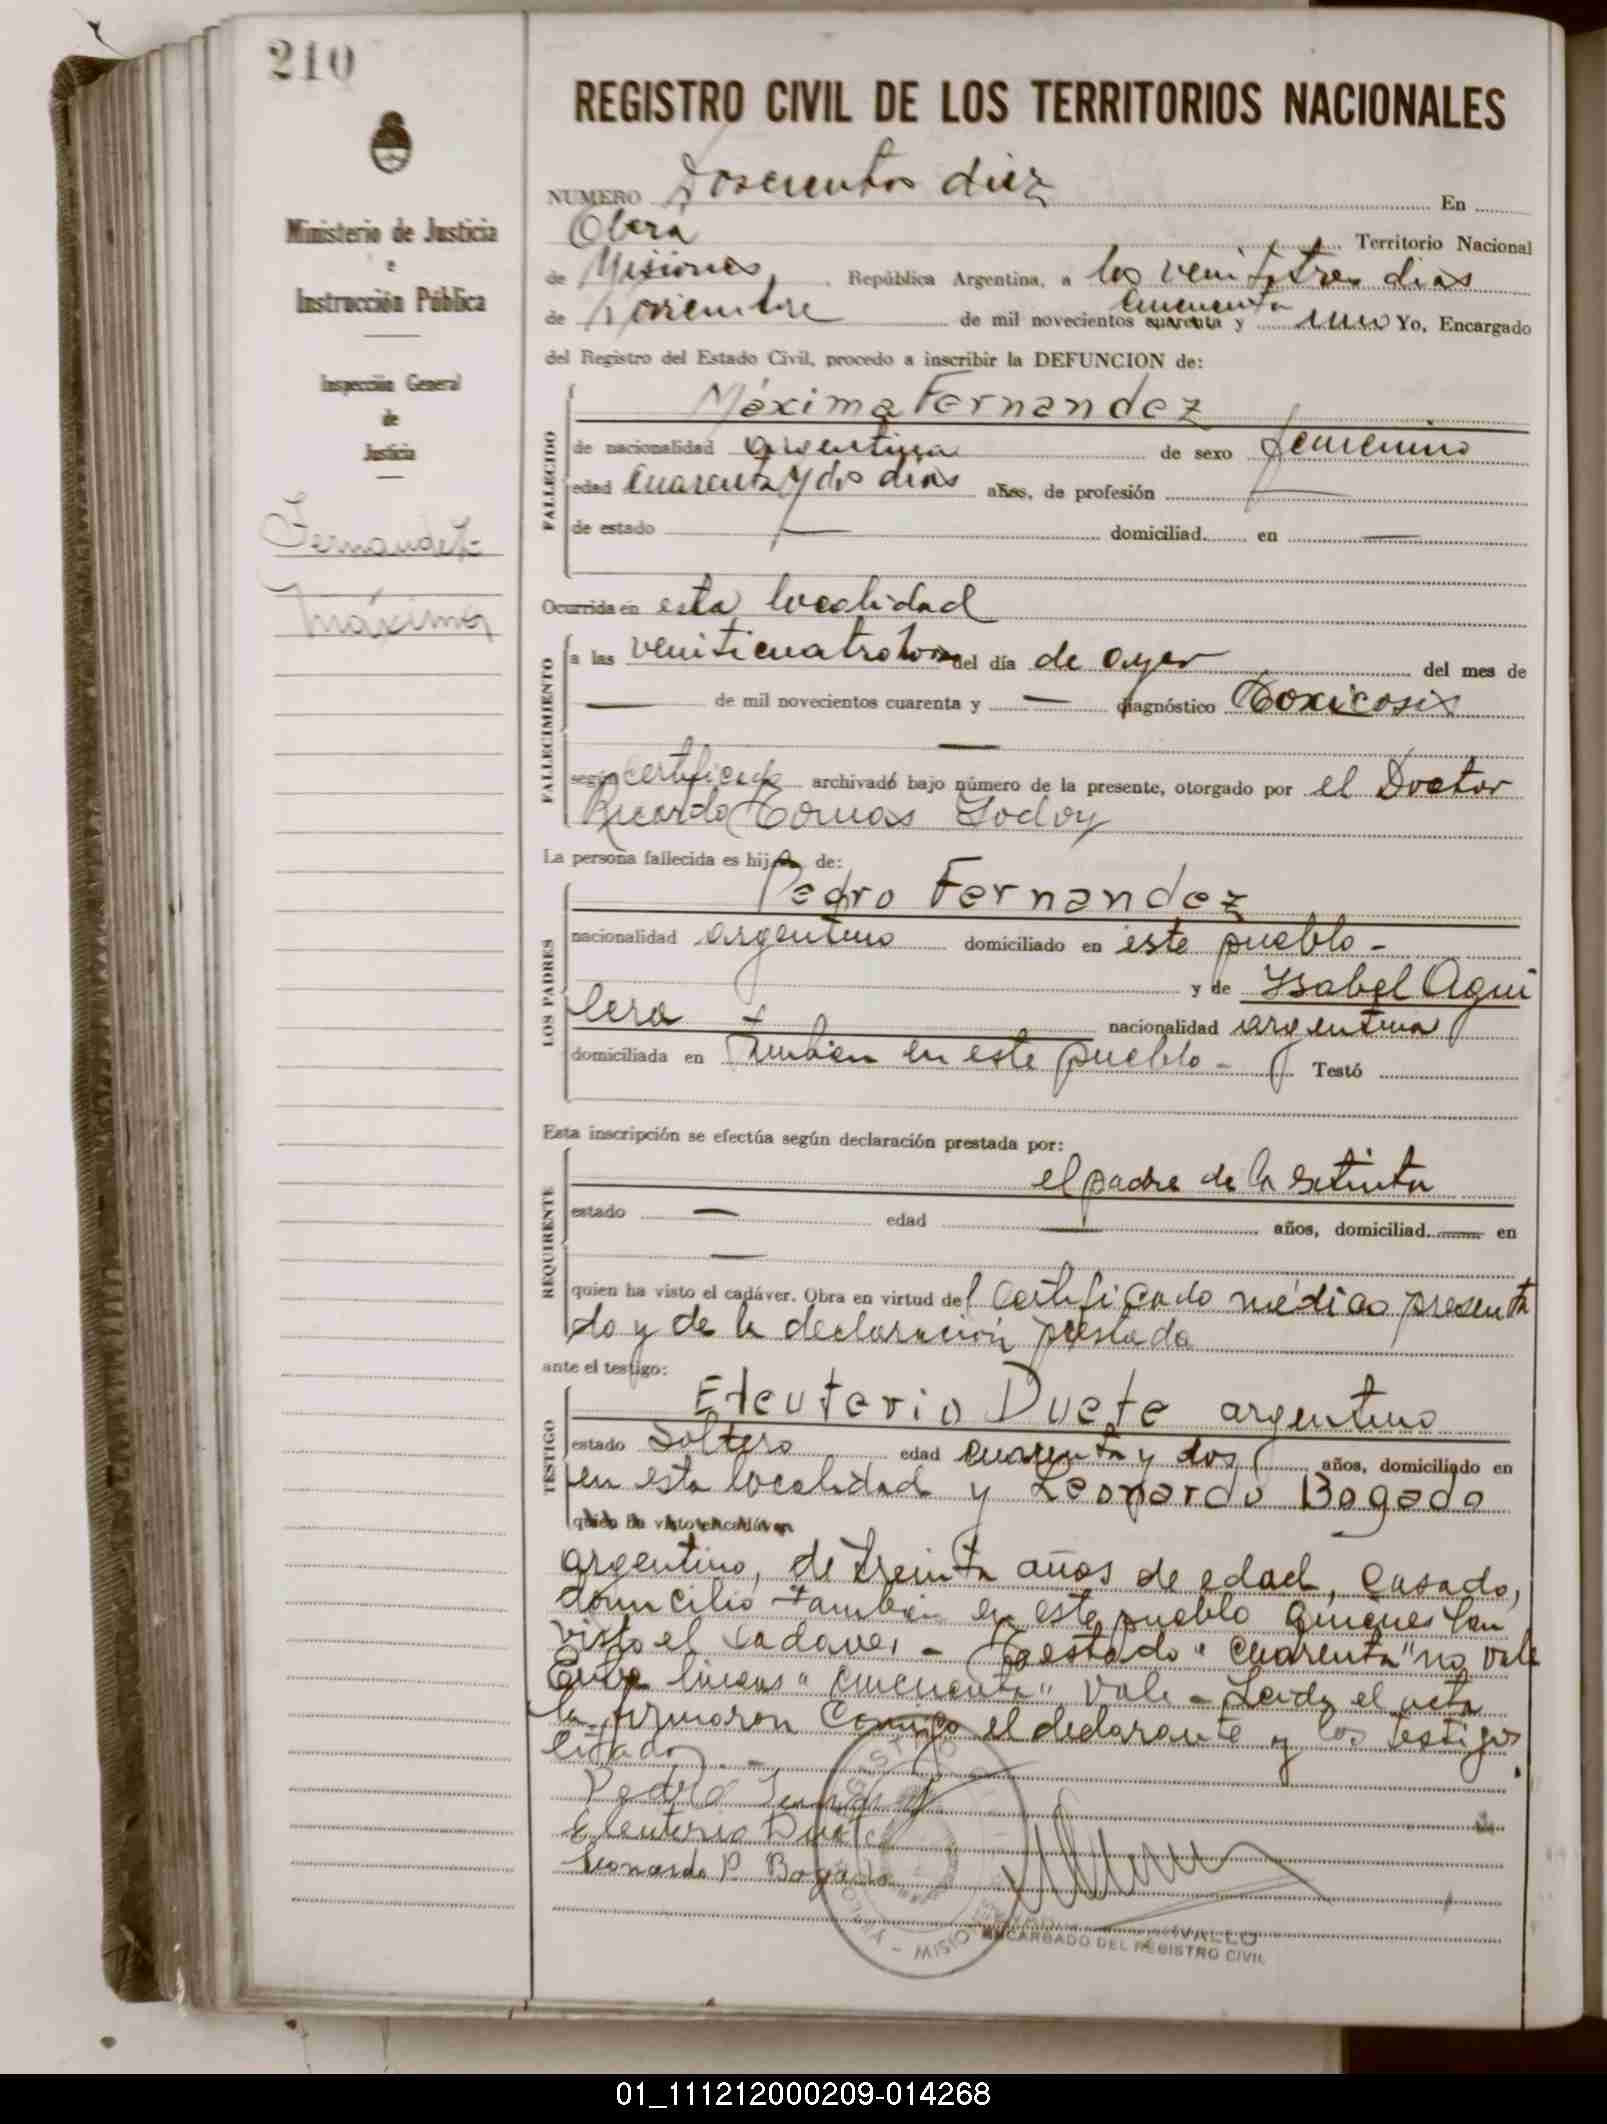 210
Ministerio de Justicia
e
Instrucción Pública
Inspección General
de
Justicia
Fernandez
Máxima
REGISTRO CIVIL DE LOS TERRITORIOS NACIONALES
NUMERO Doscientos diez En
Oberá Territorio Nacional
de Misiones, República Argentina, a los veintitres dias
cincuenta
de noviembre de mil novecientos cuarenta y uno Yo, Encargado
del Registro del Estado Civil, procedo a inscribir la DEFUNCION de:
FALLECIDO
Máxima Fernandez
de nacionalidad argentina de sexo femenino
edad cuarenta y dos dias años, de profesión —
de estado — domiciliad en —
Ocurrida en esta localidad
FALLECIMIENTO
a las veinticuatro horas del día de ayer del mes de
— de mil novecientos cuarenta y — diagnóstico Toxicosis
—
según certificado archivado bajo número de la presente, otorgado por el Doctor
Ricardo Tomas Godoy
La persona fallecida es hija de:
LOS PADRES
Pedro Fernandez
nacionalidad argentino domiciliado en este pueblo -
y de Ysabel Aqui
lera nacionalidad argentina
domiciliada en tambien en este pueblo - Testó
Esta inscripción se efectúa según declaración prestada por:
REQUIRENTE
el padre de la extinta
estado — edad — años, domiciliad — en
—
quien ha visto el cadáver. Obra en virtud del certificado médico presenta
do y de la declaración prestada
ante el testigo:
TESTIGO
Eleuterio Duete argentino
estado soltero edad cuarenta y dos años, domiciliado en
en esta localidad y Leonardo Bogado
quien ha visto el cadáver
argentino, de treinta años de edad, casado,
domicilio tambien en este pueblo quienes han
visto el cadaver - Testado "cuarenta" no vale
Entre lineas "cincuenta" vale - Leida el acta
la firmaron conmigo el declarante y los testigos
citados. -
Pedro
Eleuterio
Leonardo P. Bogado
ENCARGADO DEL REGISTRO CIVIL
01_111212000209-014268